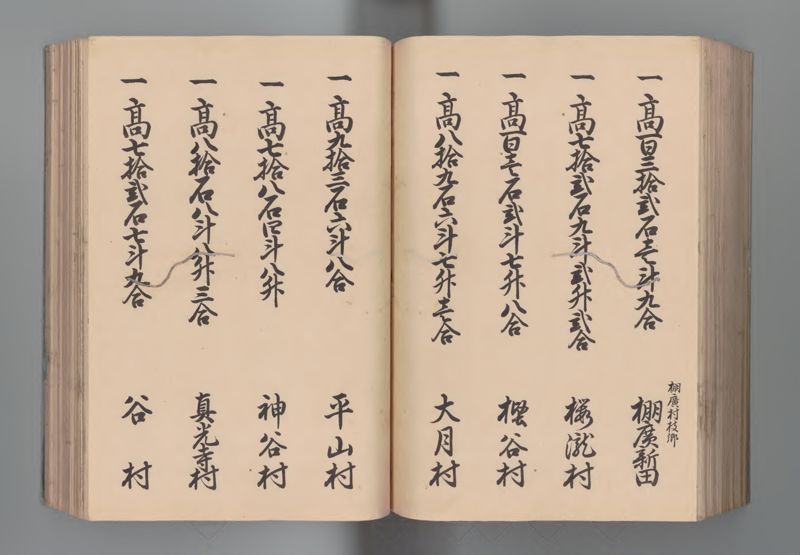 一高百三拾弐石壱斗九合
棚廣村枝郷
棚廣新田
一高七拾弐石九斗弐升弐合
桜瀧村
一高百壱石弐斗七升八合
樫谷村
一高八拾九石六斗七升壱合
大月村
一高九拾三石六斗八合
平山村
一高七拾八石四斗八升
神谷村
一高八拾石八斗八升三合
真光寺村
一高七拾弐石七斗九合
谷村